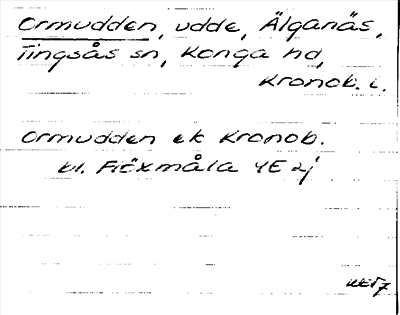 Ormudden, udde, Älganäs,
Tingsås sn, Konga hd,
Kronob. l.
Ormudden ek Kronob.
bl. Fröxmåla 4E 2j